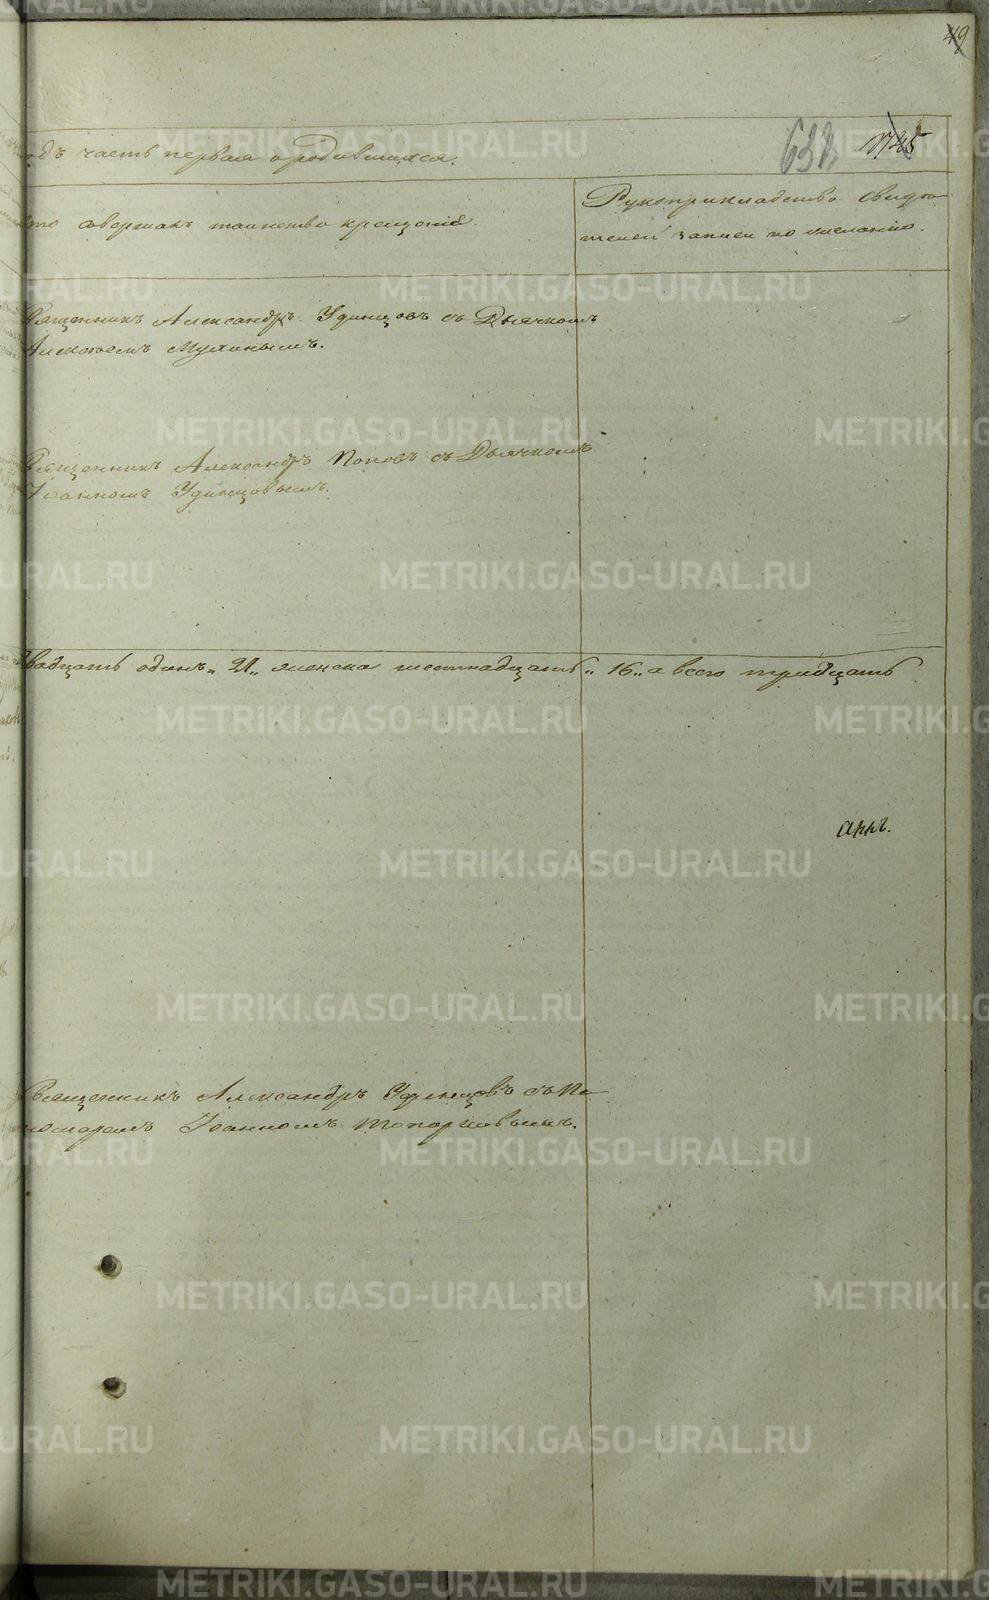 49
одъ часть первая о родившихся.
632
Кто совершалъ таинство крещенія.
Рукоприкладство свидѣ-
телей записи по желанію.
Священникъ Александръ Удинцовъ съ Дьячкомъ
Алексѣемъ Мухинымъ.
Священникъ Александръ Поповъ съ Дьячкомъ
Іоанномъ Удинцовымъ.
двадцать одинъ „21„ женска шестнадцать „16„ а всего тридцать
Священникъ Александръ Удинцовъ съ По-
номаремъ Іоанномъ Топорковымъ.
METRIKI.GASO-URAL.RU